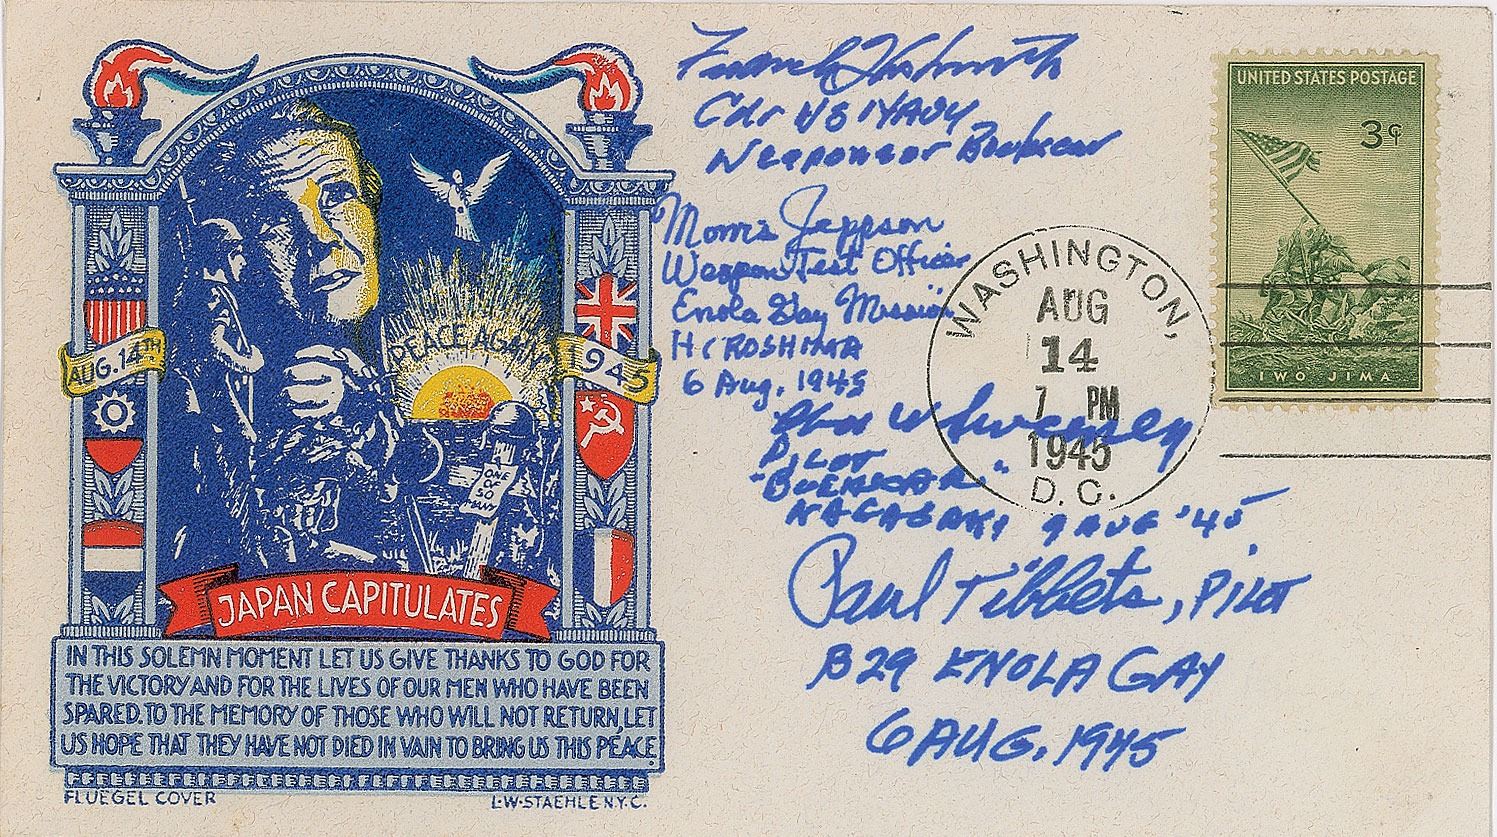 Ashworth
Cdr US NAVY
Weaponeer Bockscar
Morris Jeppson
Weapon Test Officer
Enola Gay Mission
HIROSHIMA
6 Aug, 1945
Chas W Sweeney
PILOT
"BOCKSCAR"
NAGASAKI 9 AUG '45
Paul Tibbets, PILOT
B29 ENOLA GAY
6 AUG. 1945
UNITED STATES POSTAGE
3¢
IWO JIMA
WASHINGTON,
AUG
14
7 PM
1945
D.C.
PEACE AGAIN
AUG. 14TH
1945
ONE
OF
SO
MANY
JAPAN CAPITULATES
IN THIS SOLEMN MOMENT LET US GIVE THANKS TO GOD FOR
THE VICTORY AND FOR THE LIVES OF OUR MEN WHO HAVE BEEN
SPARED. TO THE MEMORY OF THOSE WHO WILL NOT RETURN, LET
US HOPE THAT THEY HAVE NOT DIED IN VAIN TO BRING US THIS PEACE.
FLUEGEL COVER
L.W.STAEHLE N.Y.C.